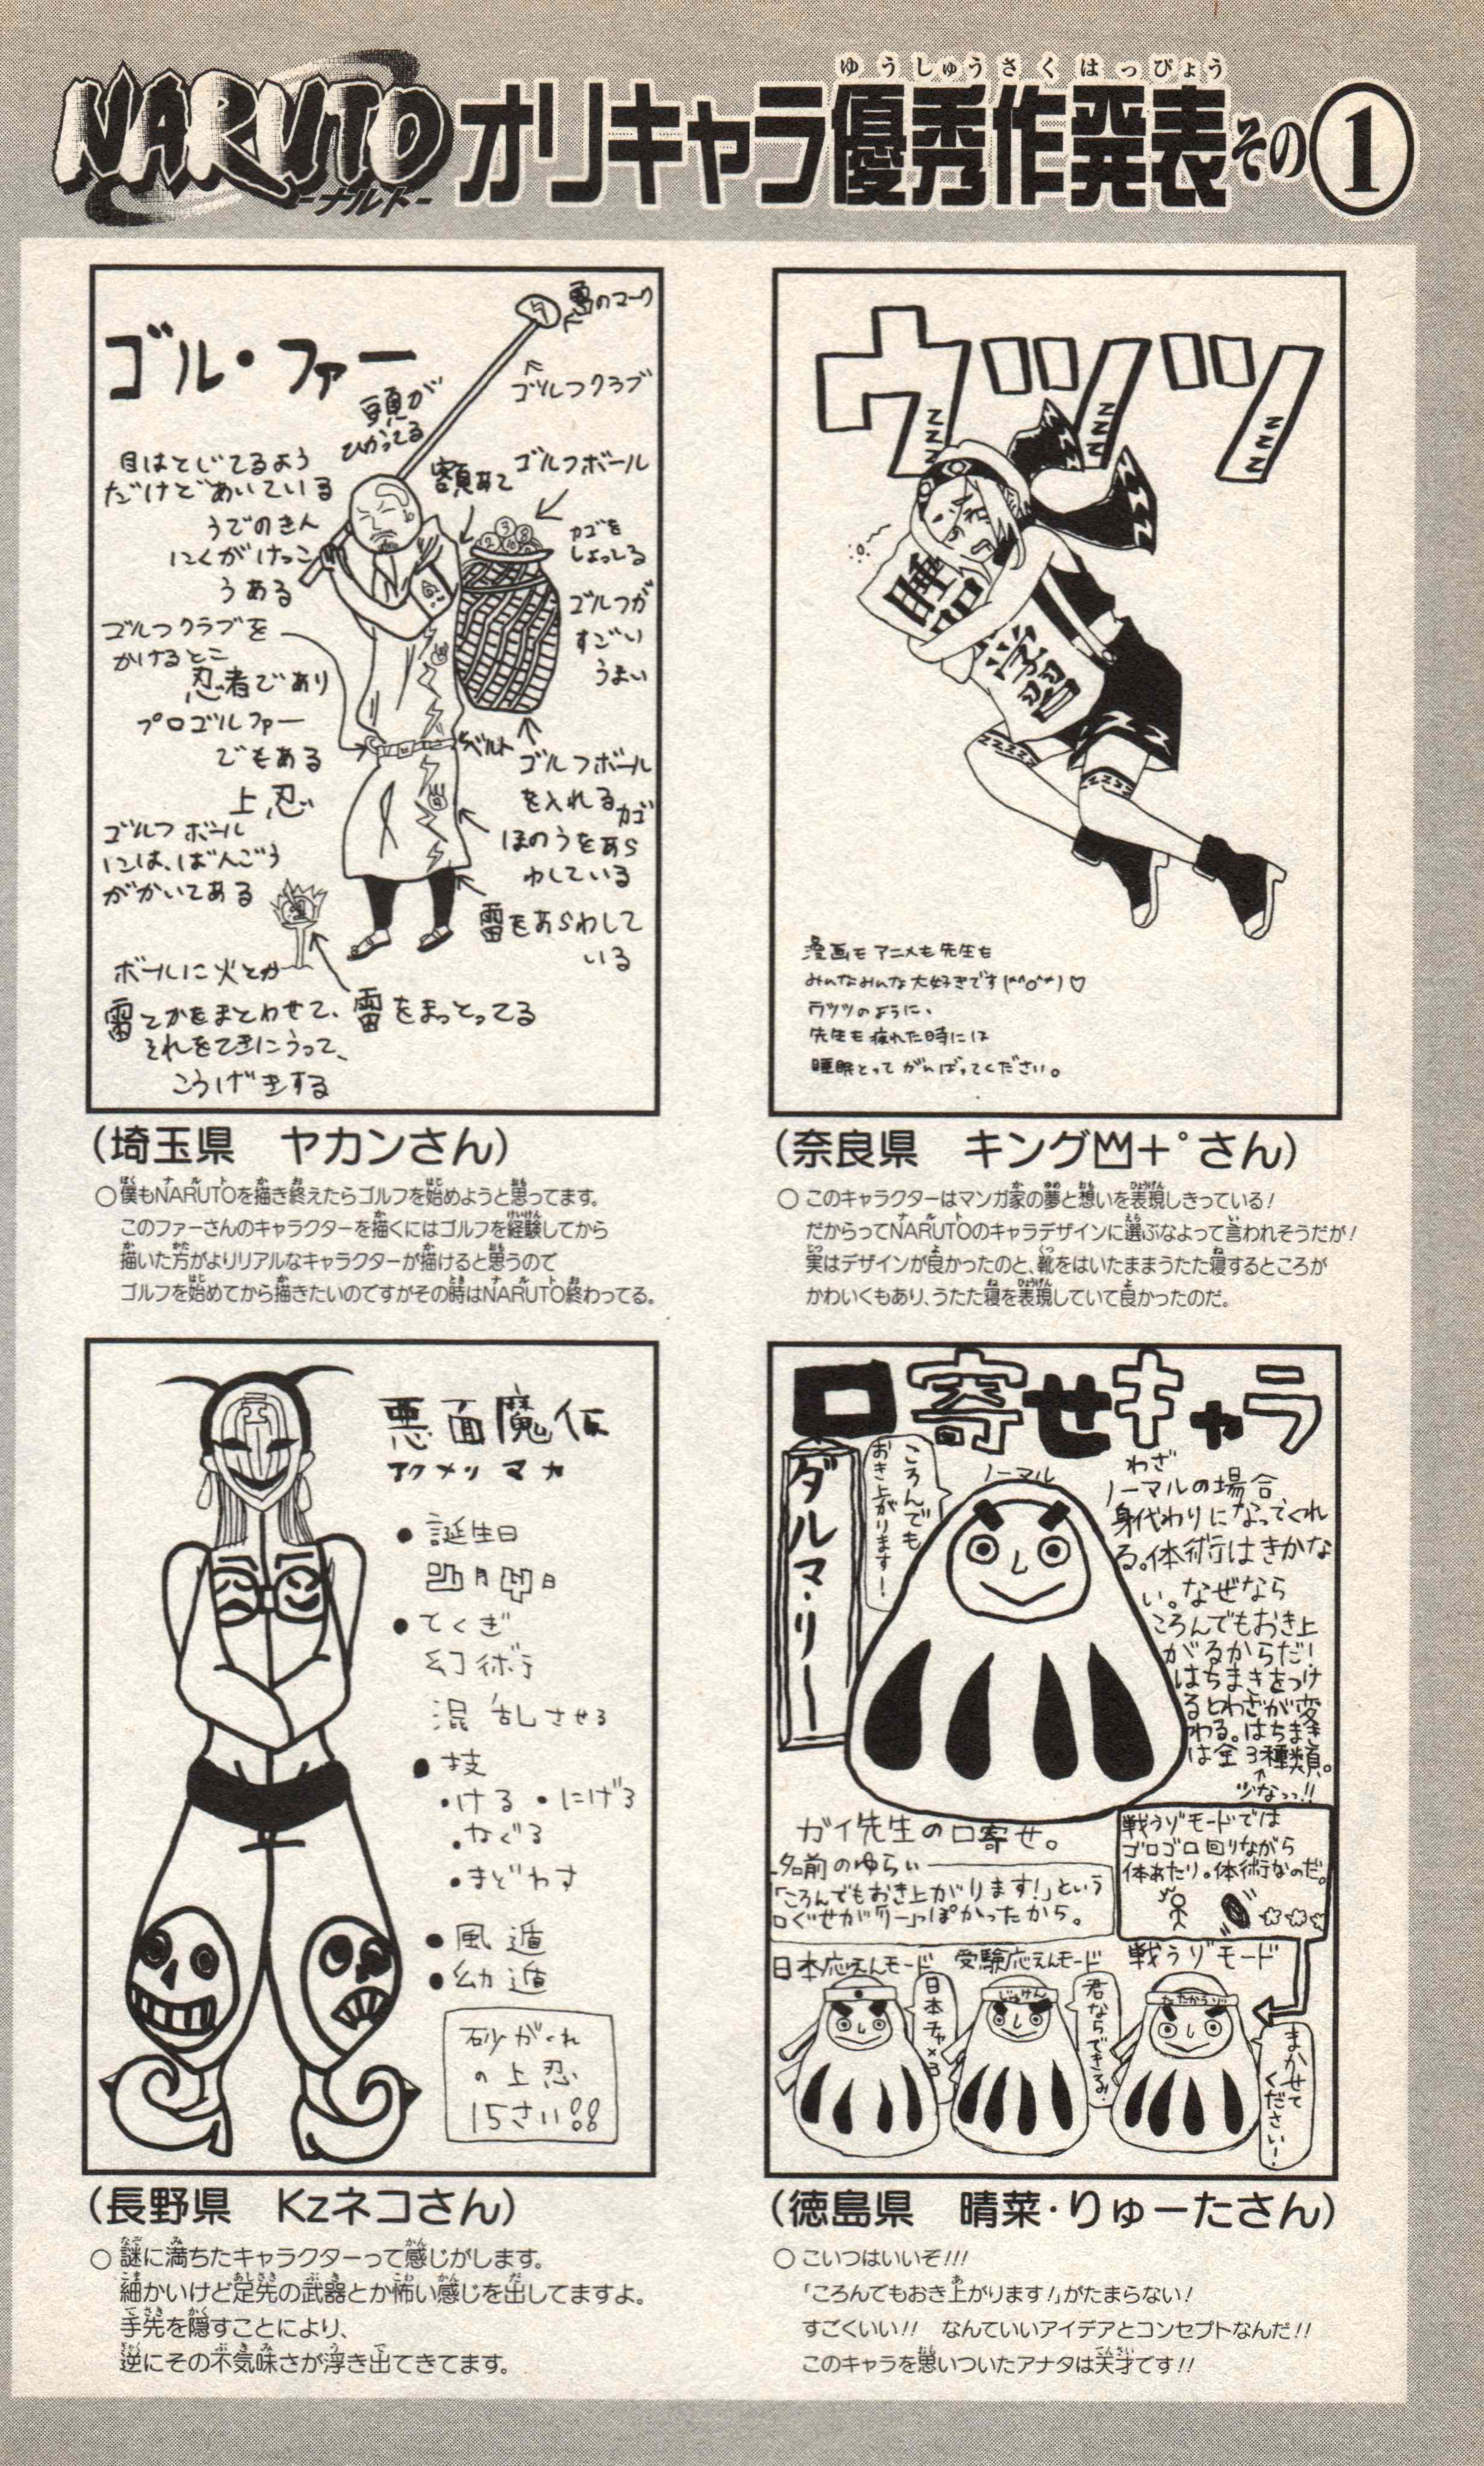 ゆうしゅうさくはっぴょう
NARUTO -ナルト- オリキャラ優秀作発表その①
ゴル・ファー
雷のマーク
ゴルフクラブ
頭が
ひかってる
額あて
ゴルフボール
カゴを
しょってる
目はとじてるよう
だけどあいている
うでのきん
にくがけっこ
うある
ゴルフが
すごい
うまい
ゴルフクラブを
かけるとこ
忍者であり
プロゴルファー
でもある
上忍
ベルト
ゴルフボール
を入れるカゴ
ゴルフボール
には、ばんごう
がかいてある
ほのうをあら
わしている
雷をあらわして
いる
ボールに火とか
雷とかをまとわせて、
それをてきにうって、
こうげきする
雷をまとってる
(埼玉県 ヤカンさん)
○僕もNARUTOを描き終えたらゴルフを始めようと思ってます。
このファーさんのキャラクターを描くにはゴルフを経験してから
描いた方がよりリアルなキャラクターが描けると思うので
ゴルフを始めてから描きたいのですがその時はNARUTO終わってる。
ウツツ
ZZZ
ZZZ
ZZZ
睡
学習
漫画もアニメも先生も
みんなみんな大好きです(*^o^*)♡
ウツツのように、
先生も疲れた時には
睡眠とってがんばってください。
(奈良県 キング凹+°さん)
○このキャラクターはマンガ家の夢と想いを表現しきっている!
だからってNARUTOのキャラデザインに選ぶなよって言われそうだが!
実はデザインが良かったのと、靴をはいたままうたた寝するところが
かわいくもあり、うたた寝を表現していて良かったのだ。
悪面魔仮
アクメン マカ
●誕生日
●てくぎ
幻術
混乱させる
●技
・ける ・にげる
・なぐる
・まどわす
●風遁
●幼遁
砂がくれ
の上忍
15さい!!
(長野県 Kzネコさん)
○謎に満ちたキャラクターって感じがします。
細かいけど足先の武器とか怖い感じを出してますよ。
手先を隠すことにより、
逆にその不気味さが浮き出てきてます。
口寄せキャラ
ダルマ・リー
ころんでも
おき上がります!
ノーマル
わざ
ノーマルの場合
身代わりになってくれ
る。体術はきかな
い。なぜなら
ころんでもおき上
がるからだ!
はちまきをつけ
るとわざが変
わる。はちまき
は全3種類。
少なっ!!
ガイ先生の口寄せ。
名前のゆらい
「ころんでもおき上がります!」という
口ぐせが「リー」っぽかったから。
戦うゾモードでは
ゴロゴロ回りながら
体あたり。体術なのだ。
日本応えんモード
日本チャ×3
受験応えんモード
じゅけん
君ならできるよ
戦うゾモード
たたかうゾ
まかせて
ください!
(徳島県 晴菜・りゅーたさん)
○こいつはいいぞ!!!
「ころんでもおき上がります!」がたまらない!
すごくいい!! なんていいアイデアとコンセプトなんだ!!
このキャラを思いついたアナタは天才です!!